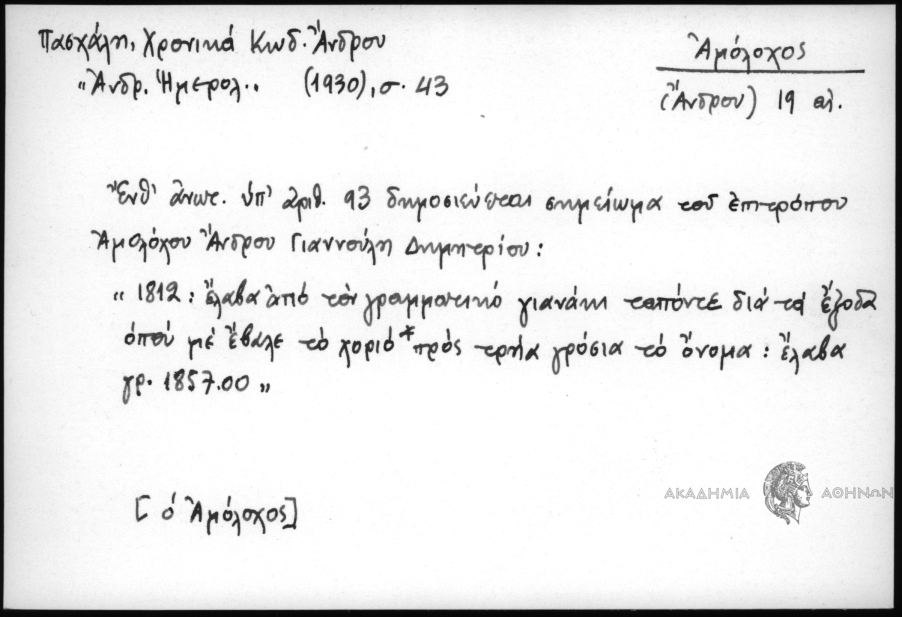 Πασχάλη, Χρονικά Κωδ. Ἄνδρου
"Ἀνδρ. Ἡμερολ." (1930), σ. 43
Ἀμόλοχος
(Ἄνδρου) 19 αἰ.
Ἔνθ' ἀνωτ. ὑπ' ἀριθ. 93 δημοσιεύεται σημείωμα τοῦ ἐπιτρόπου
Ἀμολόχου Ἄνδρου Γιαννούλη Δημητρίου :
" 1812 : ἔλαβα ἀπό τόν γραμματικό γιανάκη ταπόντε διά τά ἔξοδα
ὁπού μέ ἔβαλε τό χοριό * πρός τρήα γρόσια τό ὄνομα : ἔλαβα
γρ. 1857.00 "
[ ὁ Ἀμόλοχος ]
ΑΚΑΔΗΜΙΑ ΑΘΗΝΩΝ